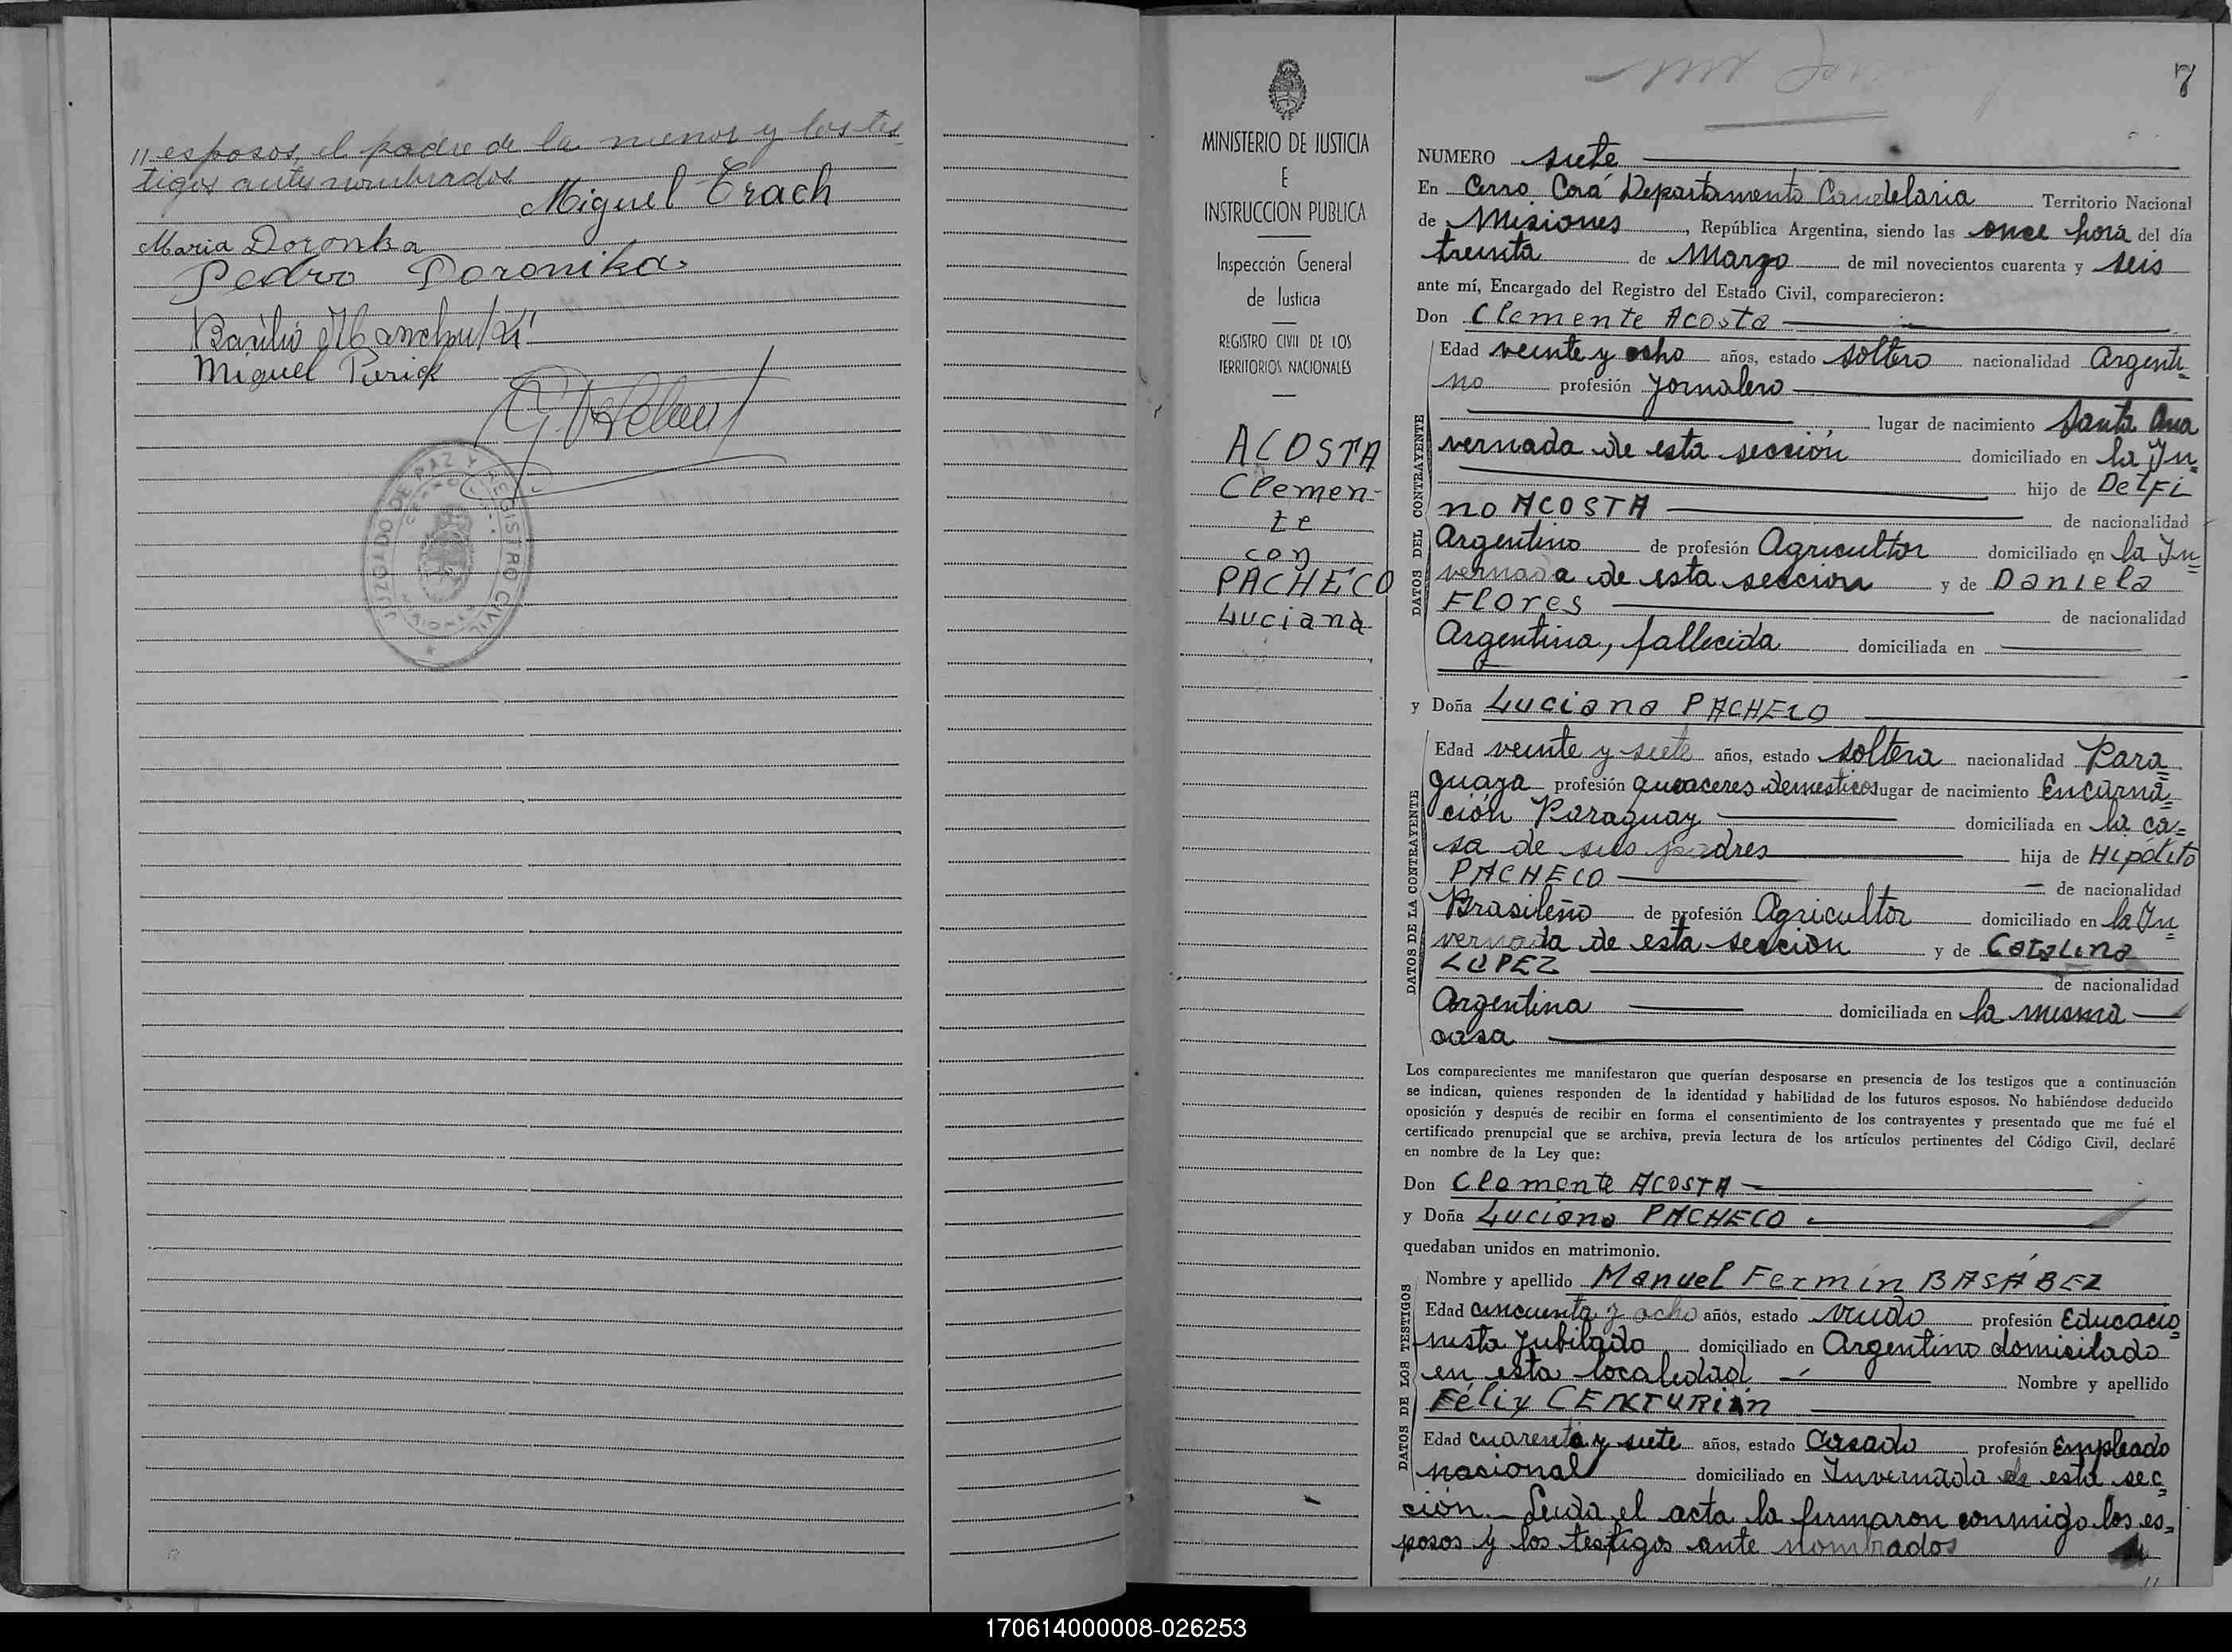 11 esposos, el padre de la menor y los tes
tigos antes nombrados
Miguel Erach
Maria Doronka
Pedro Doronika
Basilio
Miguel
JUZGADO DE PAZ Y REGISTRO CIVIL
MINISTERIO DE JUSTICIA
E
INSTRUCCION PUBLICA
Inspección General
de Justicia
REGISTRO CIVIL DE LOS
TERRITORIOS NACIONALES
ACOSTA
Clemen-
te
con
PACHECO
Luciana
7
NUMERO siete
En Cerro Corá Departamento Candelaria Territorio Nacional
de Misiones, República Argentina, siendo las once hora del día
treinta de Marzo de mil novecientos cuarenta y seis
ante mí, Encargado del Registro del Estado Civil, comparecieron:
Don Clemente Acosta
DATOS DEL CONTRAYENTE
Edad veinte y ocho años, estado soltero nacionalidad Argenti=
no profesión Jornalero
, lugar de nacimiento Santa Ana
domiciliado en la In=
vernada de esta sección
hijo de Delfi
no ACOSTA de nacionalidad
Argentino de profesión Agricultor domiciliado en la In=
vernada de esta seccion y de Daniela
Flores de nacionalidad
Argentina, fallecida domiciliada en
y Doña Luciana PACHECO
DATOS DE LA CONTRAYENTE
Edad veinte y siete años, estado soltera nacionalidad Para=
guaya profesión queaceres demesticos lugar de nacimiento Encarna=
ción Paraguay domiciliada en la ca=
sa de sus padres hija de Hipólito
PACHECO de nacionalidad
Brasileño de profesión Agricultor domiciliado en la In=
vernada de esta seccion y de Catalina
LOPEZ de nacionalidad
Argentina domiciliada en la misma
casa
Los comparecientes me manifestaron que querían desposarse en presencia de los testigos que a continuación
se indican, quienes responden de la identidad y habilidad de los futuros esposos. No habiéndose deducido
oposición y después de recibir en forma el consentimiento de los contrayentes y presentado que me fué el
certificado prenupcial que se archiva, previa lectura de los artículos pertinentes del Código Civil, declaré
en nombre de la Ley que:
Don Clemente ACOSTA
y Doña Luciana PACHECO
quedaban unidos en matrimonio.
DATOS DE LOS TESTIGOS
Nombre y apellido Manuel Fermín BASÁBEZ
Edad cincuenta y ocho años, estado viudo profesión Educacio=
nista Jubilado domiciliado en Argentino domicilado
en esta localidad Nombre y apellido
Félix CENTURIÓN
Edad cuarenta y siete años, estado Casado profesión Empleado
nacional domiciliado en Invernada de esta sec=
ción. Leida el acta la firmaron conmigo los es=
posos y los testigos ante nombrados
11
170614000008-026253